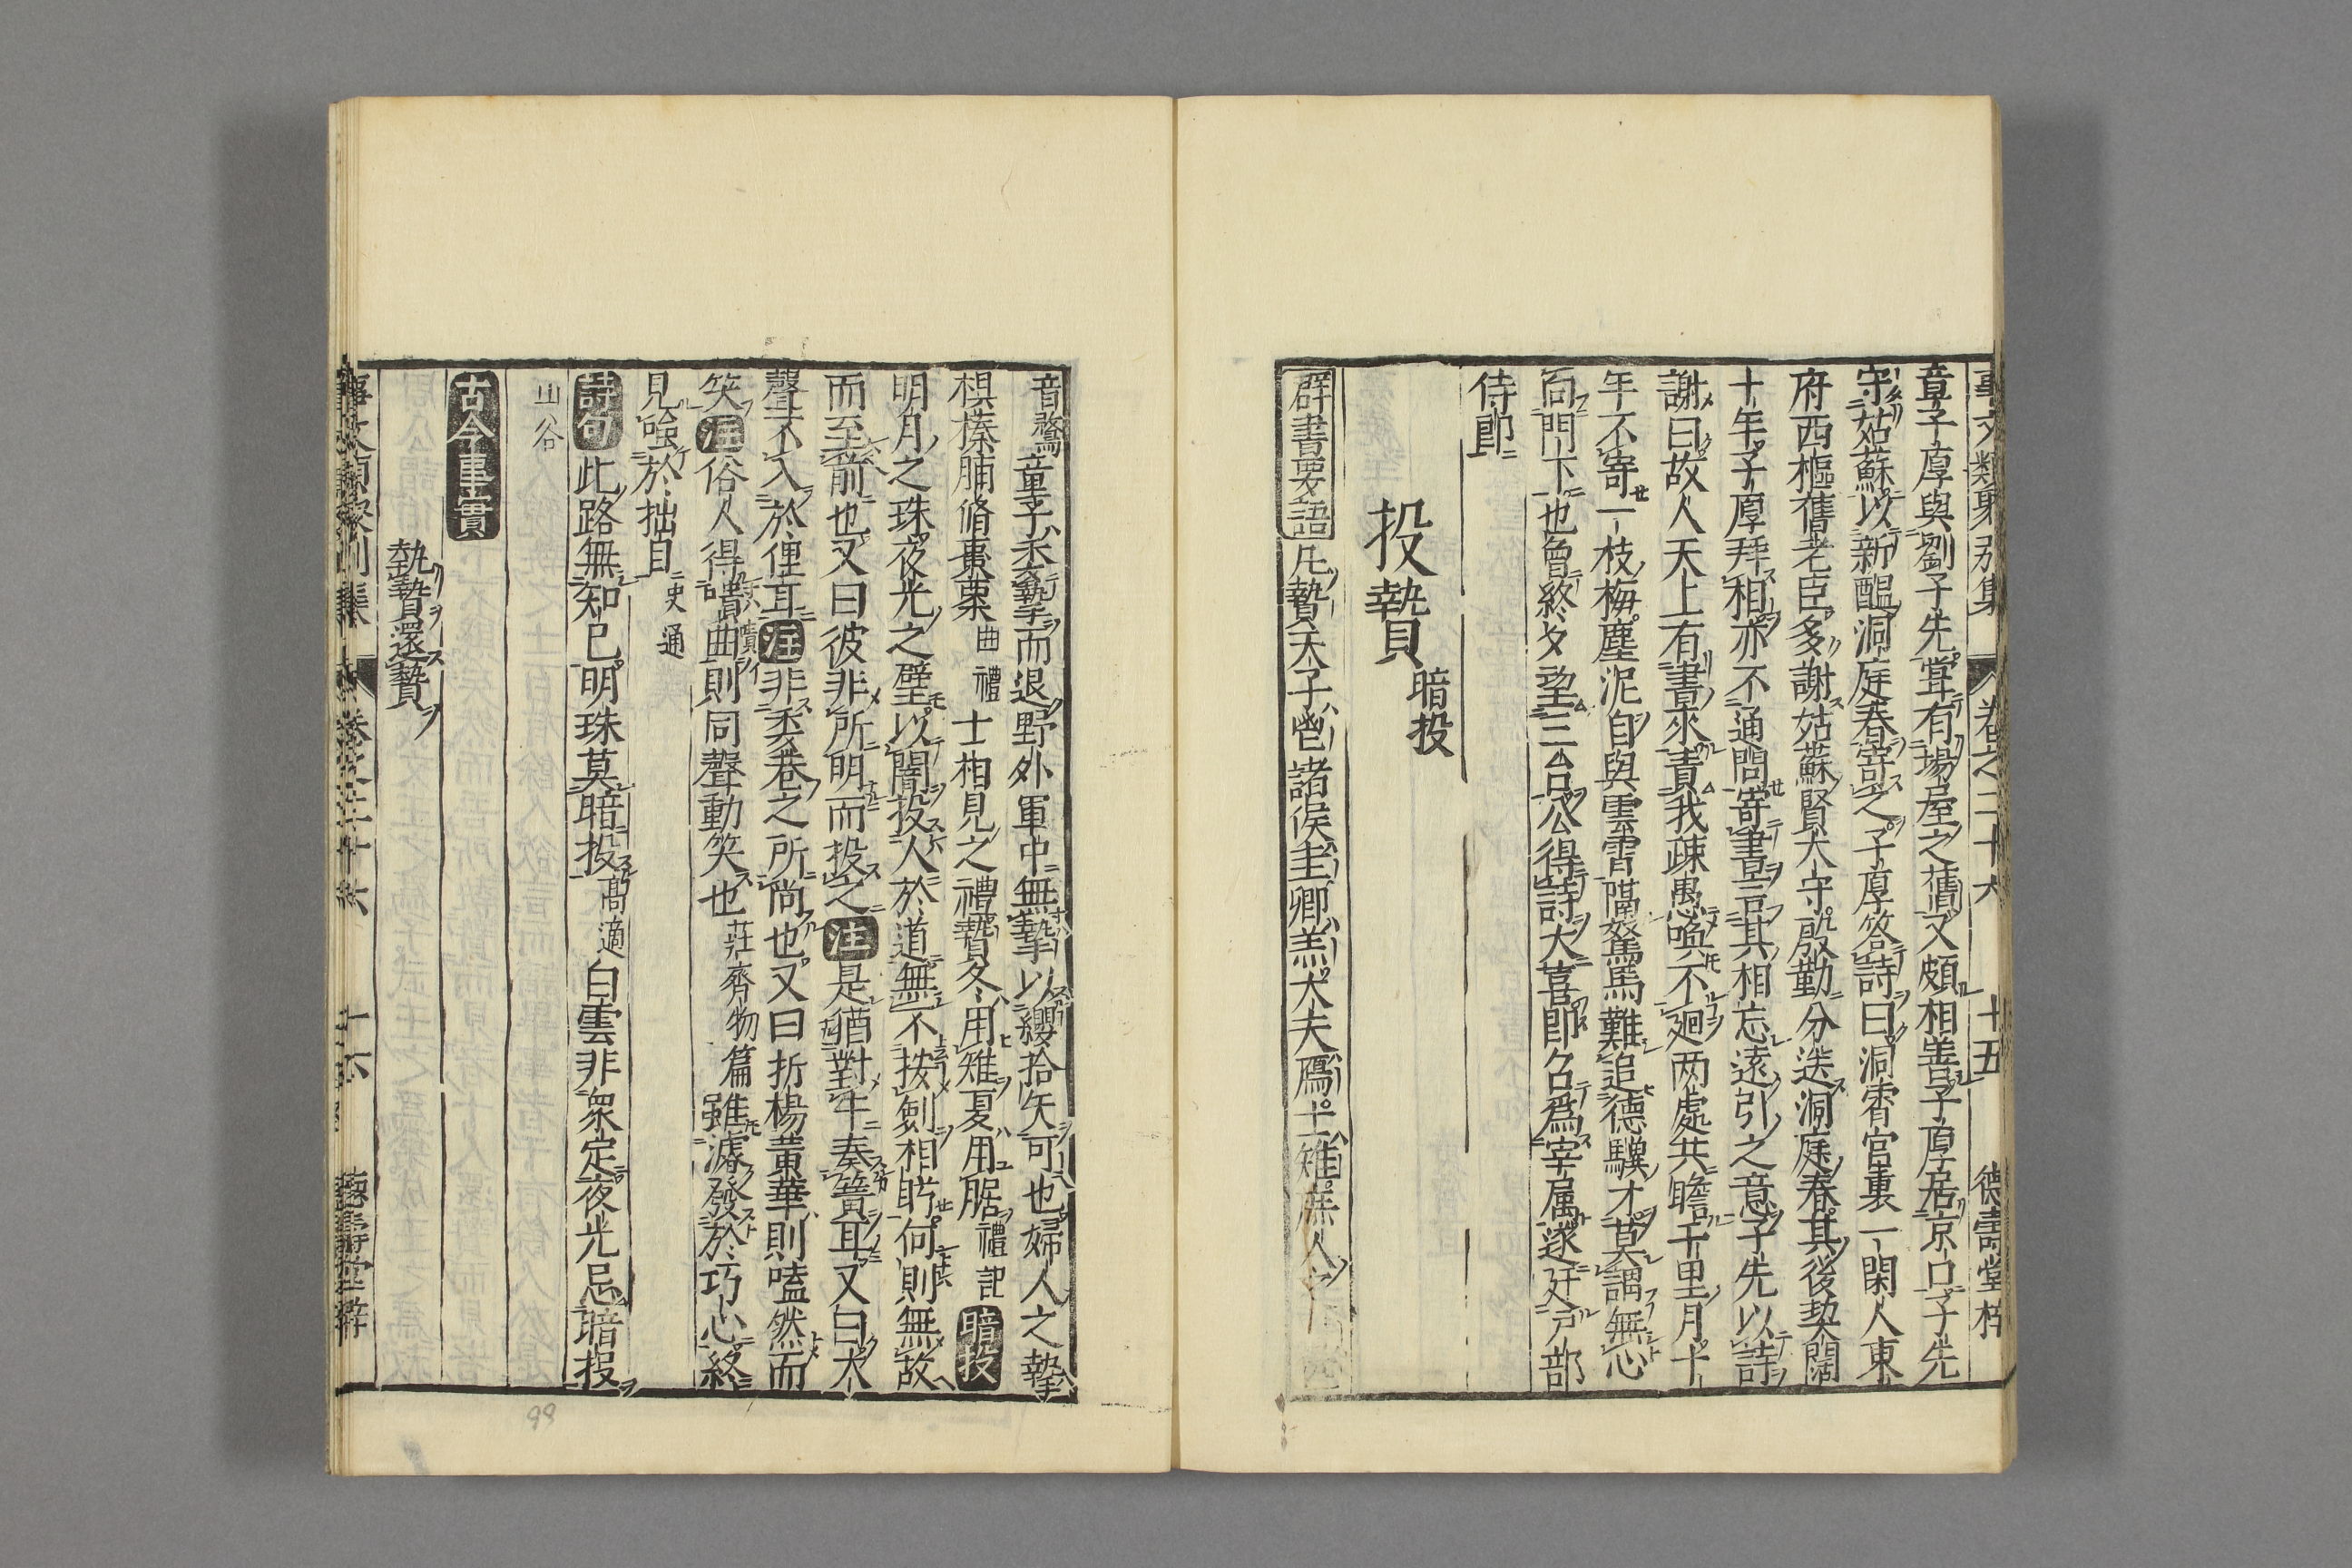 事文類聚別集 卷之二十六 十五 德壽堂梓
章子厚與劉子先嘗有場屋之舊又頗相善子厚居京口子先
守姑蘇以新醞洞庭春寄之子厚答詩曰洞霄宮裏一閑人東
府西樞舊老臣多謝姑蘇賢大守殷勤分送洞庭春其後契闊
十年子厚拜相亦不通問寄書言其相忘遠引之意子先以詩
謝曰故人天上有書來責我疎愚喚不廻两處共瞻千里月十
年不寄一枝梅塵泥自與雲霄隔駑馬難追德驥才莫謂無心
向門下也曾終夕望三台公得詩大喜即召為宰属遂迁户部
侍郎
投贄 暗投
群書要語 凡贄天子鬯諸侯圭卿羔大夫鴈士雉庶人之
音鶩童子委摯而退野外軍中無摯以纓拾矢可也婦人之摯
椇榛脯脩棗栗 曲禮 士相見之禮贄冬用雉夏用腒 禮記 暗投
明月之珠夜光之璧以闇投人於道無不按劍相眄何則無故
而至前也又曰彼非所明而投之 注 是猶對牛奏簧耳又曰大
聲不入於俚耳 注 非委巷之所尚也又曰折楊黄華則嗑然而
笑 注 俗人得嘖曲則同聲動笑也 莊齊物篇 雖濬發於巧心終
見嗤於拙目 史通
詩句 此路無知己明珠莫暗投 高適 白雲非衆定夜光忌暗投
山谷
古今事實
執贄還贄
卷之二十六 十六